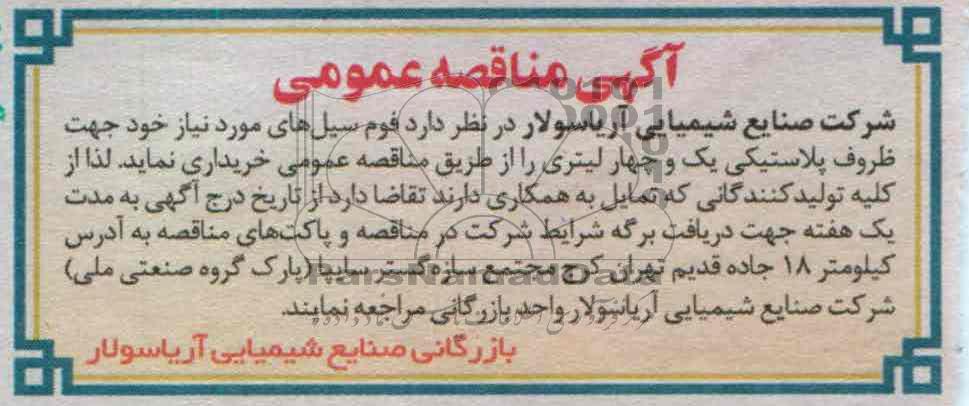 آگهی مناقصه عمومی
شرکت صنایع شیمیایی آریاسولار در نظر دارد فوم سیل‌های مورد نیاز خود جهت
ظروف پلاستیکی یک و چهار لیتری را از طریق مناقصه عمومی خریداری نماید. لذا از
کلیه تولیدکنندگانی که تمایل به همکاری دارند تقاضا دارد از تاریخ درج آگهی به مدت
یک هفته جهت دریافت برگه شرایط شرکت در مناقصه و پاکت‌های مناقصه به آدرس
کیلومتر ۱۸ جاده قدیم تهران کرج مجتمع سازه‌گستر سایپا (پارک گروه صنعتی ملی)
ParsNamadData
شرکت صنایع شیمیایی آریاسولار واحد بازرگانی مراجعه نمایند.
بازرگانی صنایع شیمیایی آریاسولار